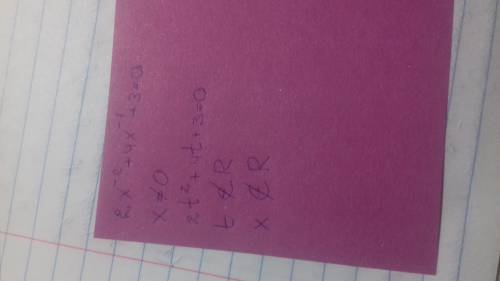 2x⁻² + 4x⁻¹ + 3 = 0
x ≠ 0
2t² + 4t + 3 = 0
t ∉ R
x ∉ R